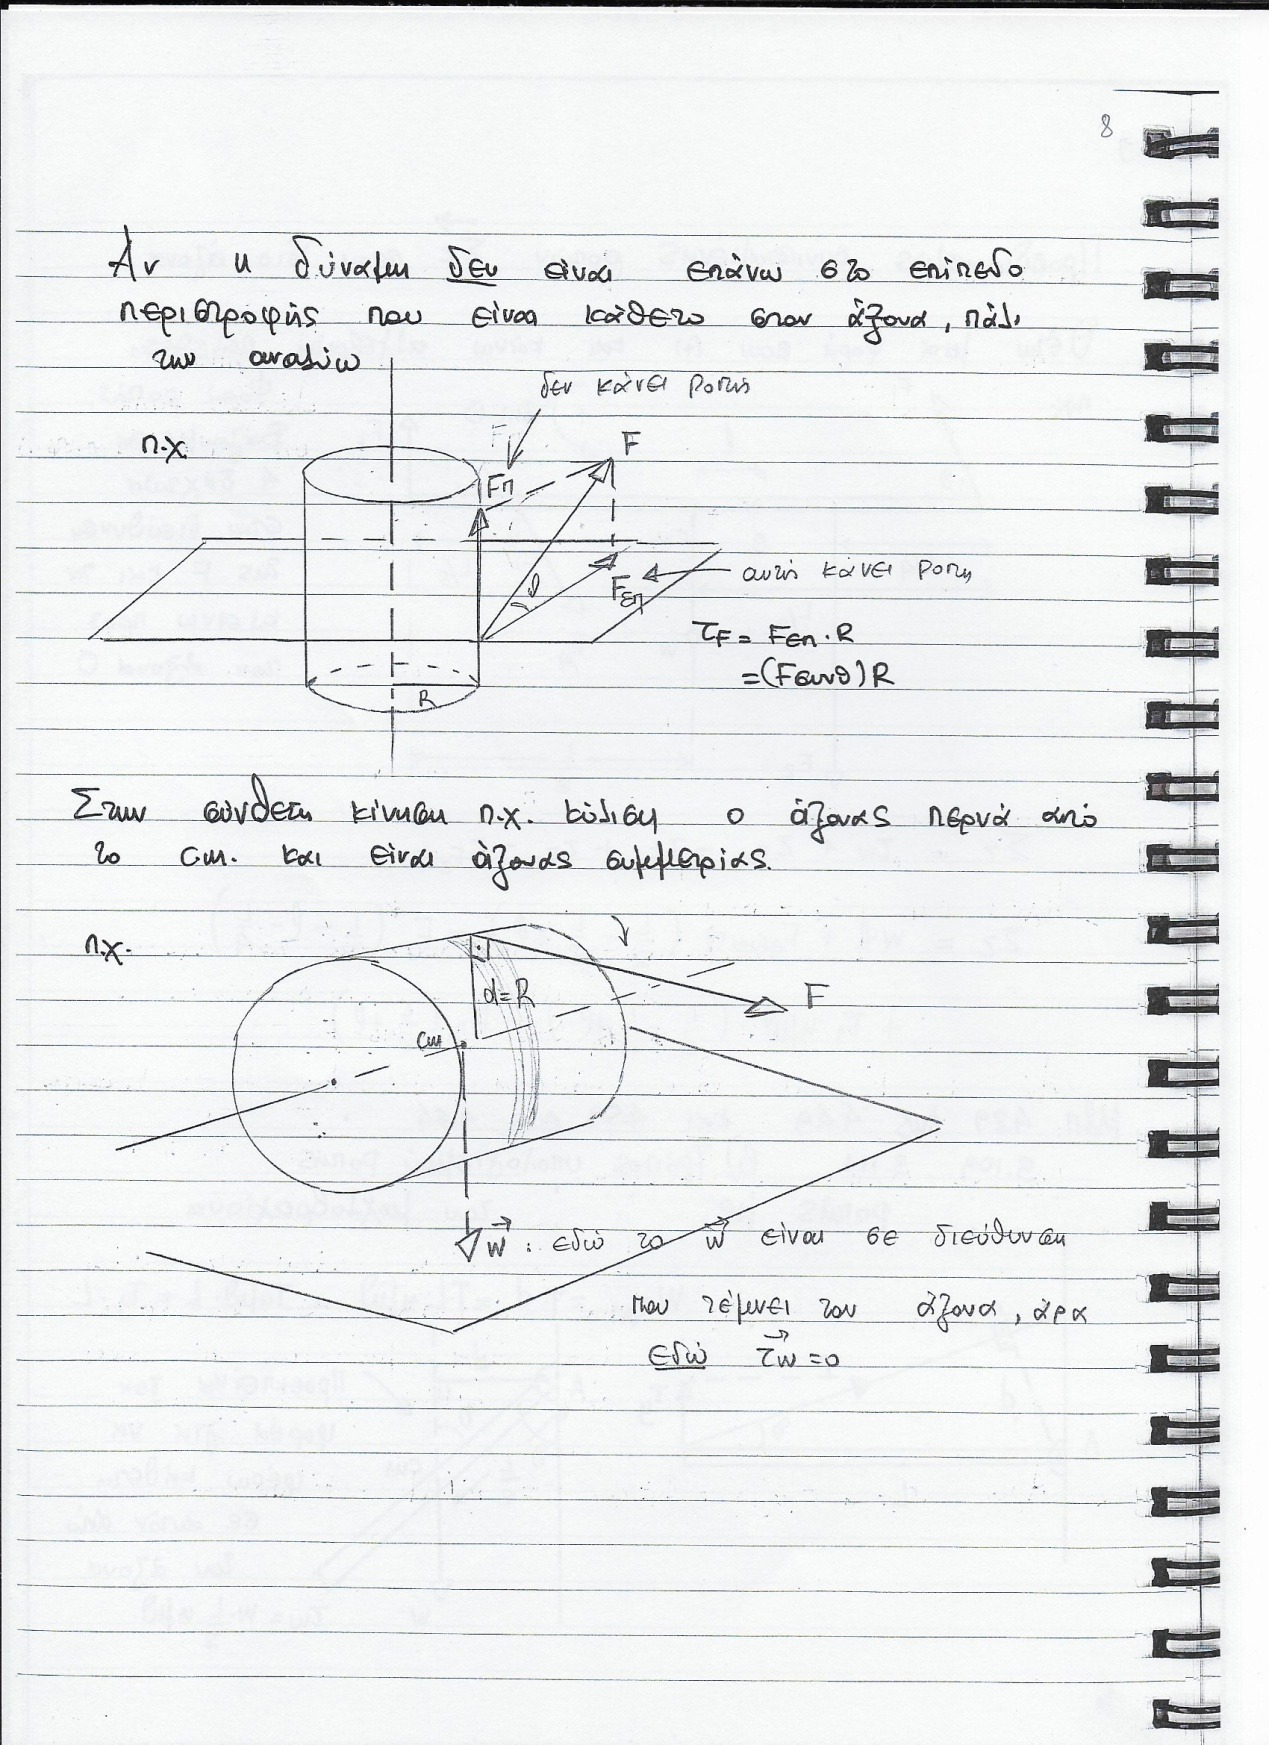 8
Αν η δύναμη δεν είναι επάνω στο επίπεδο
περιστροφής που είναι κάθετο στον άξονα, πάλι
την αναλύω
δεν κάνει ροπή
π.χ.
F
Fπ
F
Fεπ
αυτή κάνει ροπή
θ
τF = Fεπ · R
= (Fσυνθ) R
R
Στην σύνθετη κίνηση π.χ. κύλιση ο άξονας περνά από
το cm. και είναι άξονας συμμετρίας.
π.χ.
d=R
F
cm
w : εδώ το w είναι σε διεύθυνση
που τέμνει τον άξονα, άρα
εδώ τw = 0